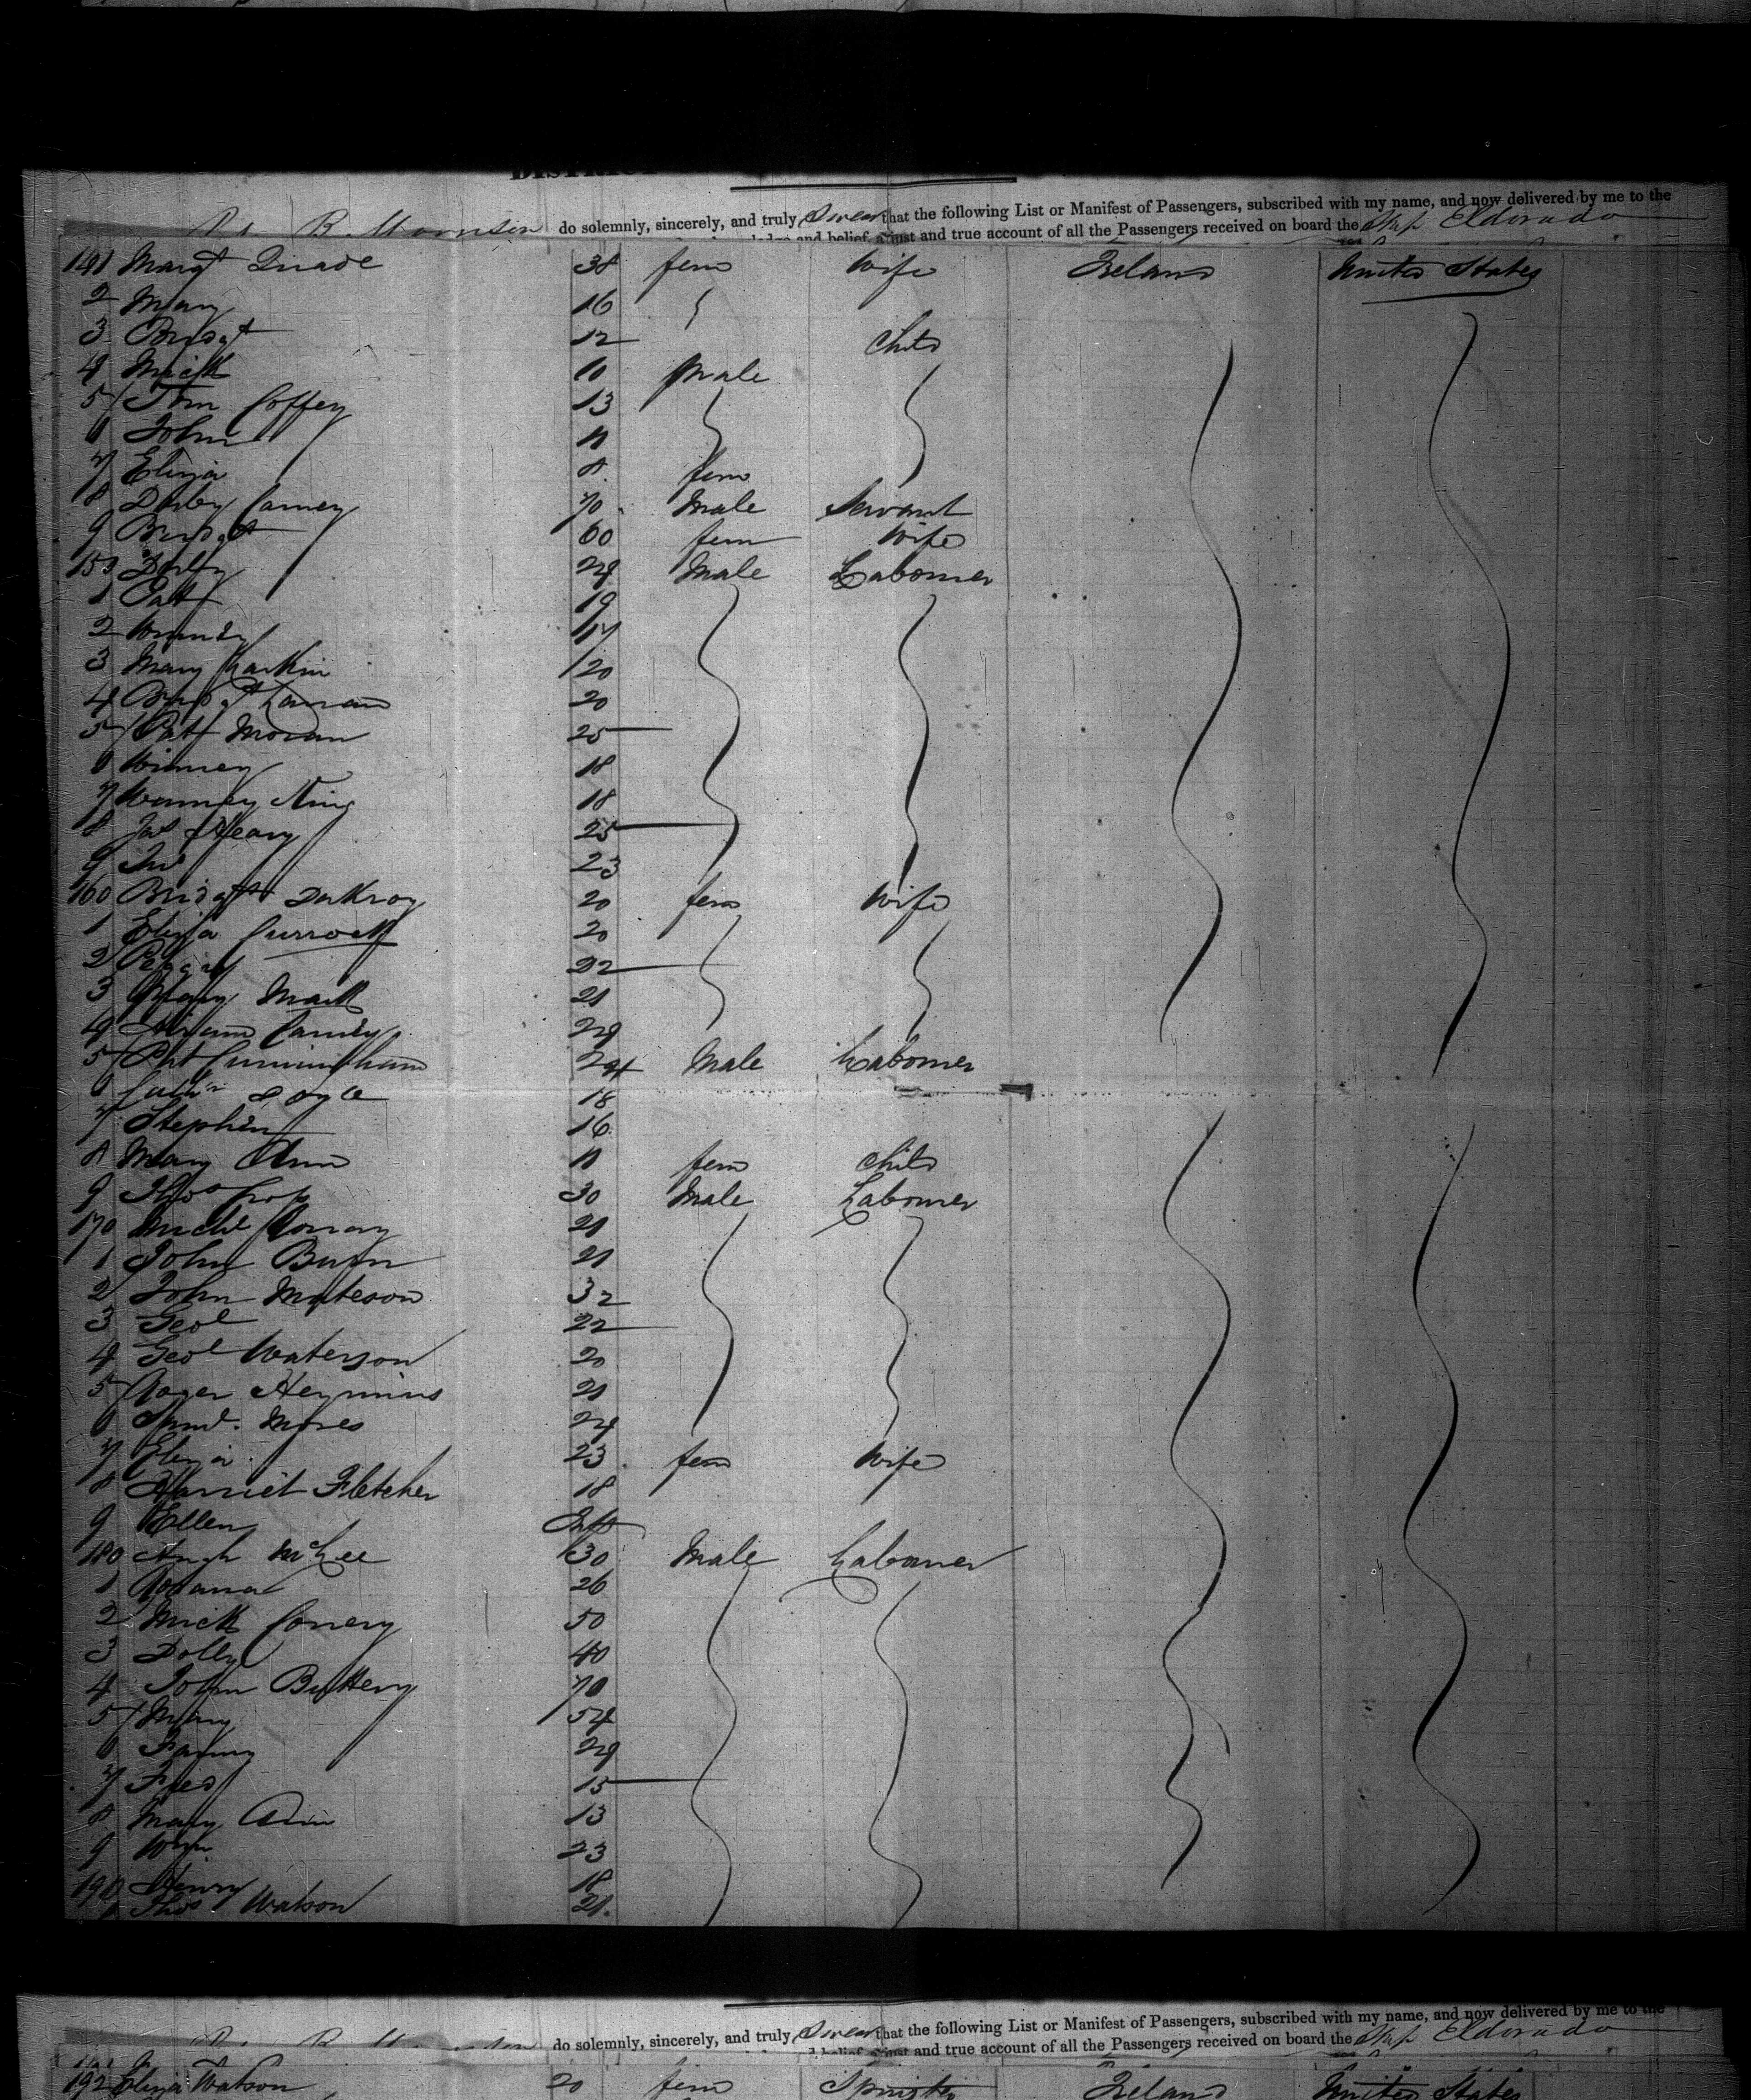 B. Morrison do solemnly, sincerely, and truly Swear that the following List or Manifest of Passengers, subscribed with my name, and now delivered by me to the
and belief, a just and true account of all the Passengers received on board the Ship Eldorado
141 Margt Quade 38 fem Wife Ireland United States
2 Mary 16
3 Bridgt 12 Child
4 Mick 10 Male
5 Tom Coffey 13
6 John 11
7 Eliza 8 fem
8 Darby Carney 70 Male Servant
9 Bridgt 60 fem Wife
150 Darby 24 Male Labourer
1 Pat 19
2 17
3 Mary Larkin 20
4 Bridgt 20
5 Pat Moran 25
6 Winney 18
7 King 18
8 Jas Heavy 25
9 23
160 Bridgt 20 fem Wife
1 Eliza 20
2 Peggy 22
3 Mary 21
4 24
5 Pat Cunningham 24 Male Labourer
6 18
7 Stephen 16
8 Mary Ann 11 fem Child
9 Thos 30 Male Labourer
170 Michl 21
1 John Burn 21
2 John Mateson 32
3 Geo 22
4 Geo Waterson 20
5 Roger 21
6 Saml. Moses 24
7 Eliza 23 fem Wife
8 Harriet Fletcher 18
9 Ellen Inft
180 Hugh McGee 30 Male Labourer
1 26
2 Mick Conery 50
3 Dolly 40
4 John Buttery 70
5 Mary 54
6 Fanny 24
7 Fred 15
8 Mary Ann 13
9 Wm. 23
190 Henry 18
1 Thos Watson 21.
do solemnly, sincerely, and truly Swear that the following List or Manifest of Passengers, subscribed with my name, and now delivered by me to the
belief, a just and true account of all the Passengers received on board the Ship Eldorado
192 Eliza Watson 20 fem Spinster Ireland United States